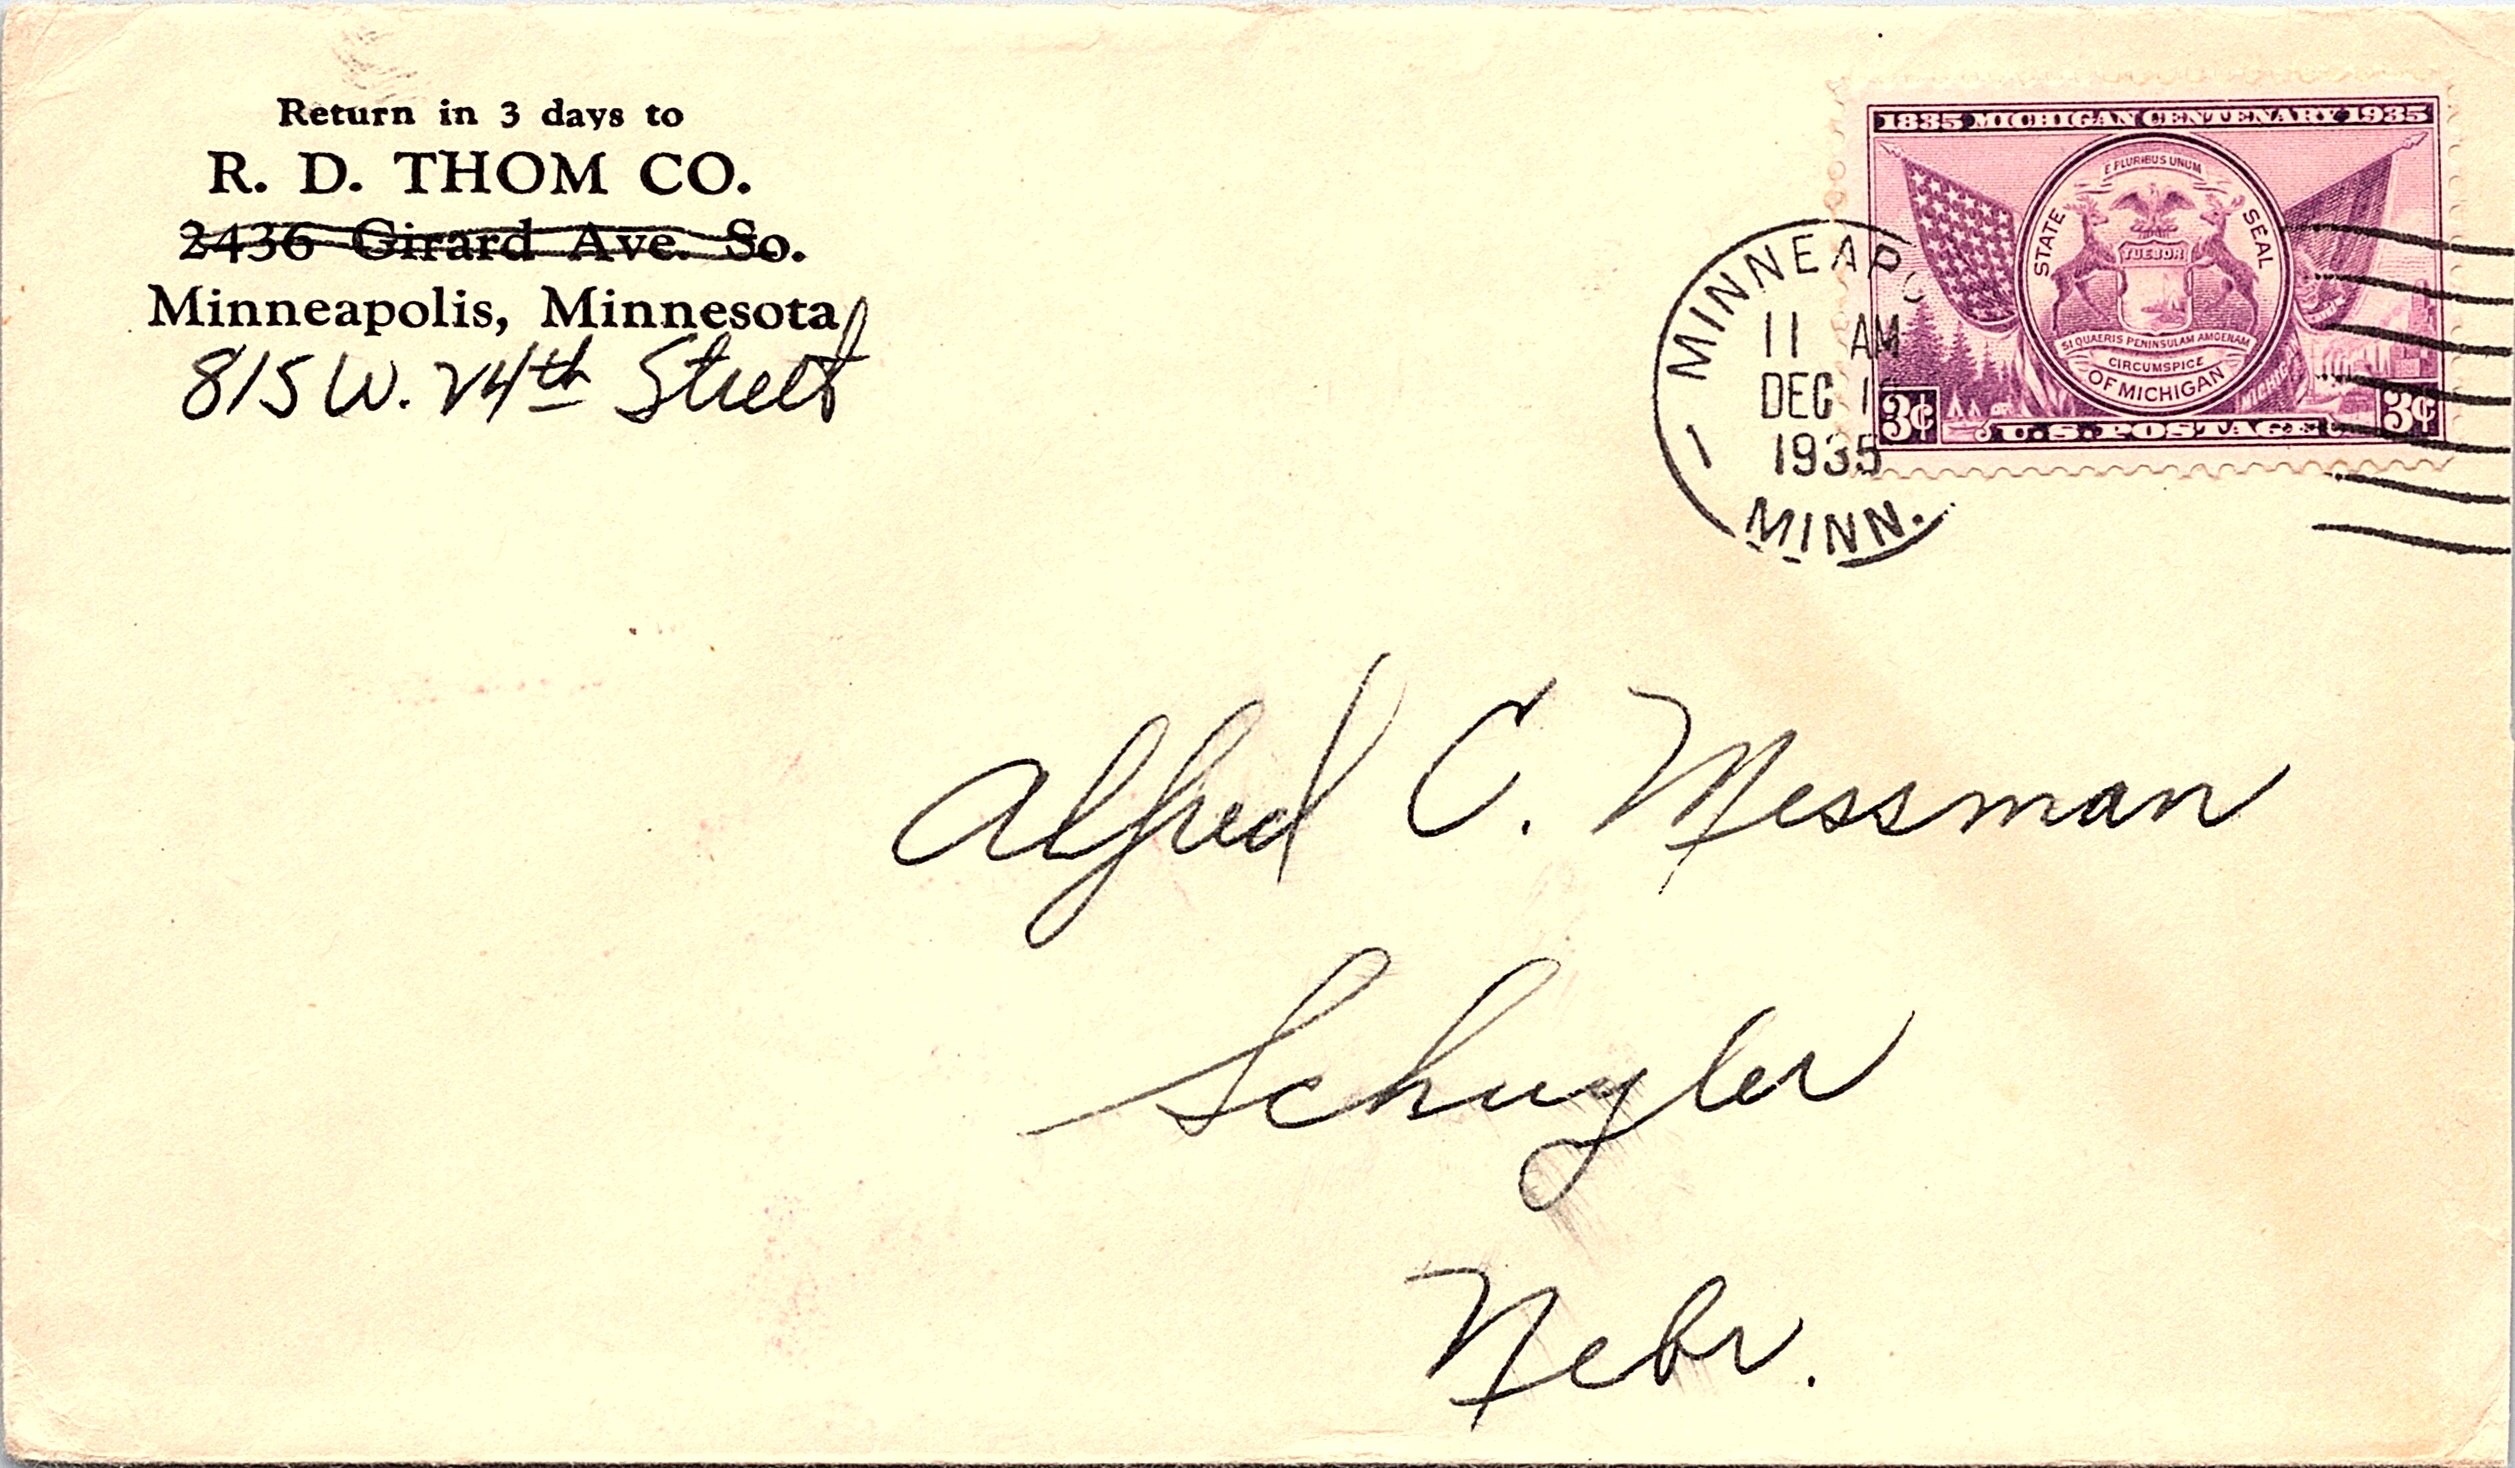 Return in 3 days to
R. D. THOM CO.
2436 Girard Ave. So.
Minneapolis, Minnesota
815 W. 24th Street
1835 MICHIGAN CENTENARY 1935
E PLURIBUS UNUM
STATE SEAL
TUEBOR
SI QUAERIS PENINSULAM AMOENAM
CIRCUMSPICE
OF MICHIGAN
3¢ 3¢
U.S. POSTAGE
MINNEAPO
11 AM
DEC 1
1935
MINN.
Alfred C. Messman
Schuyler
Nebr.